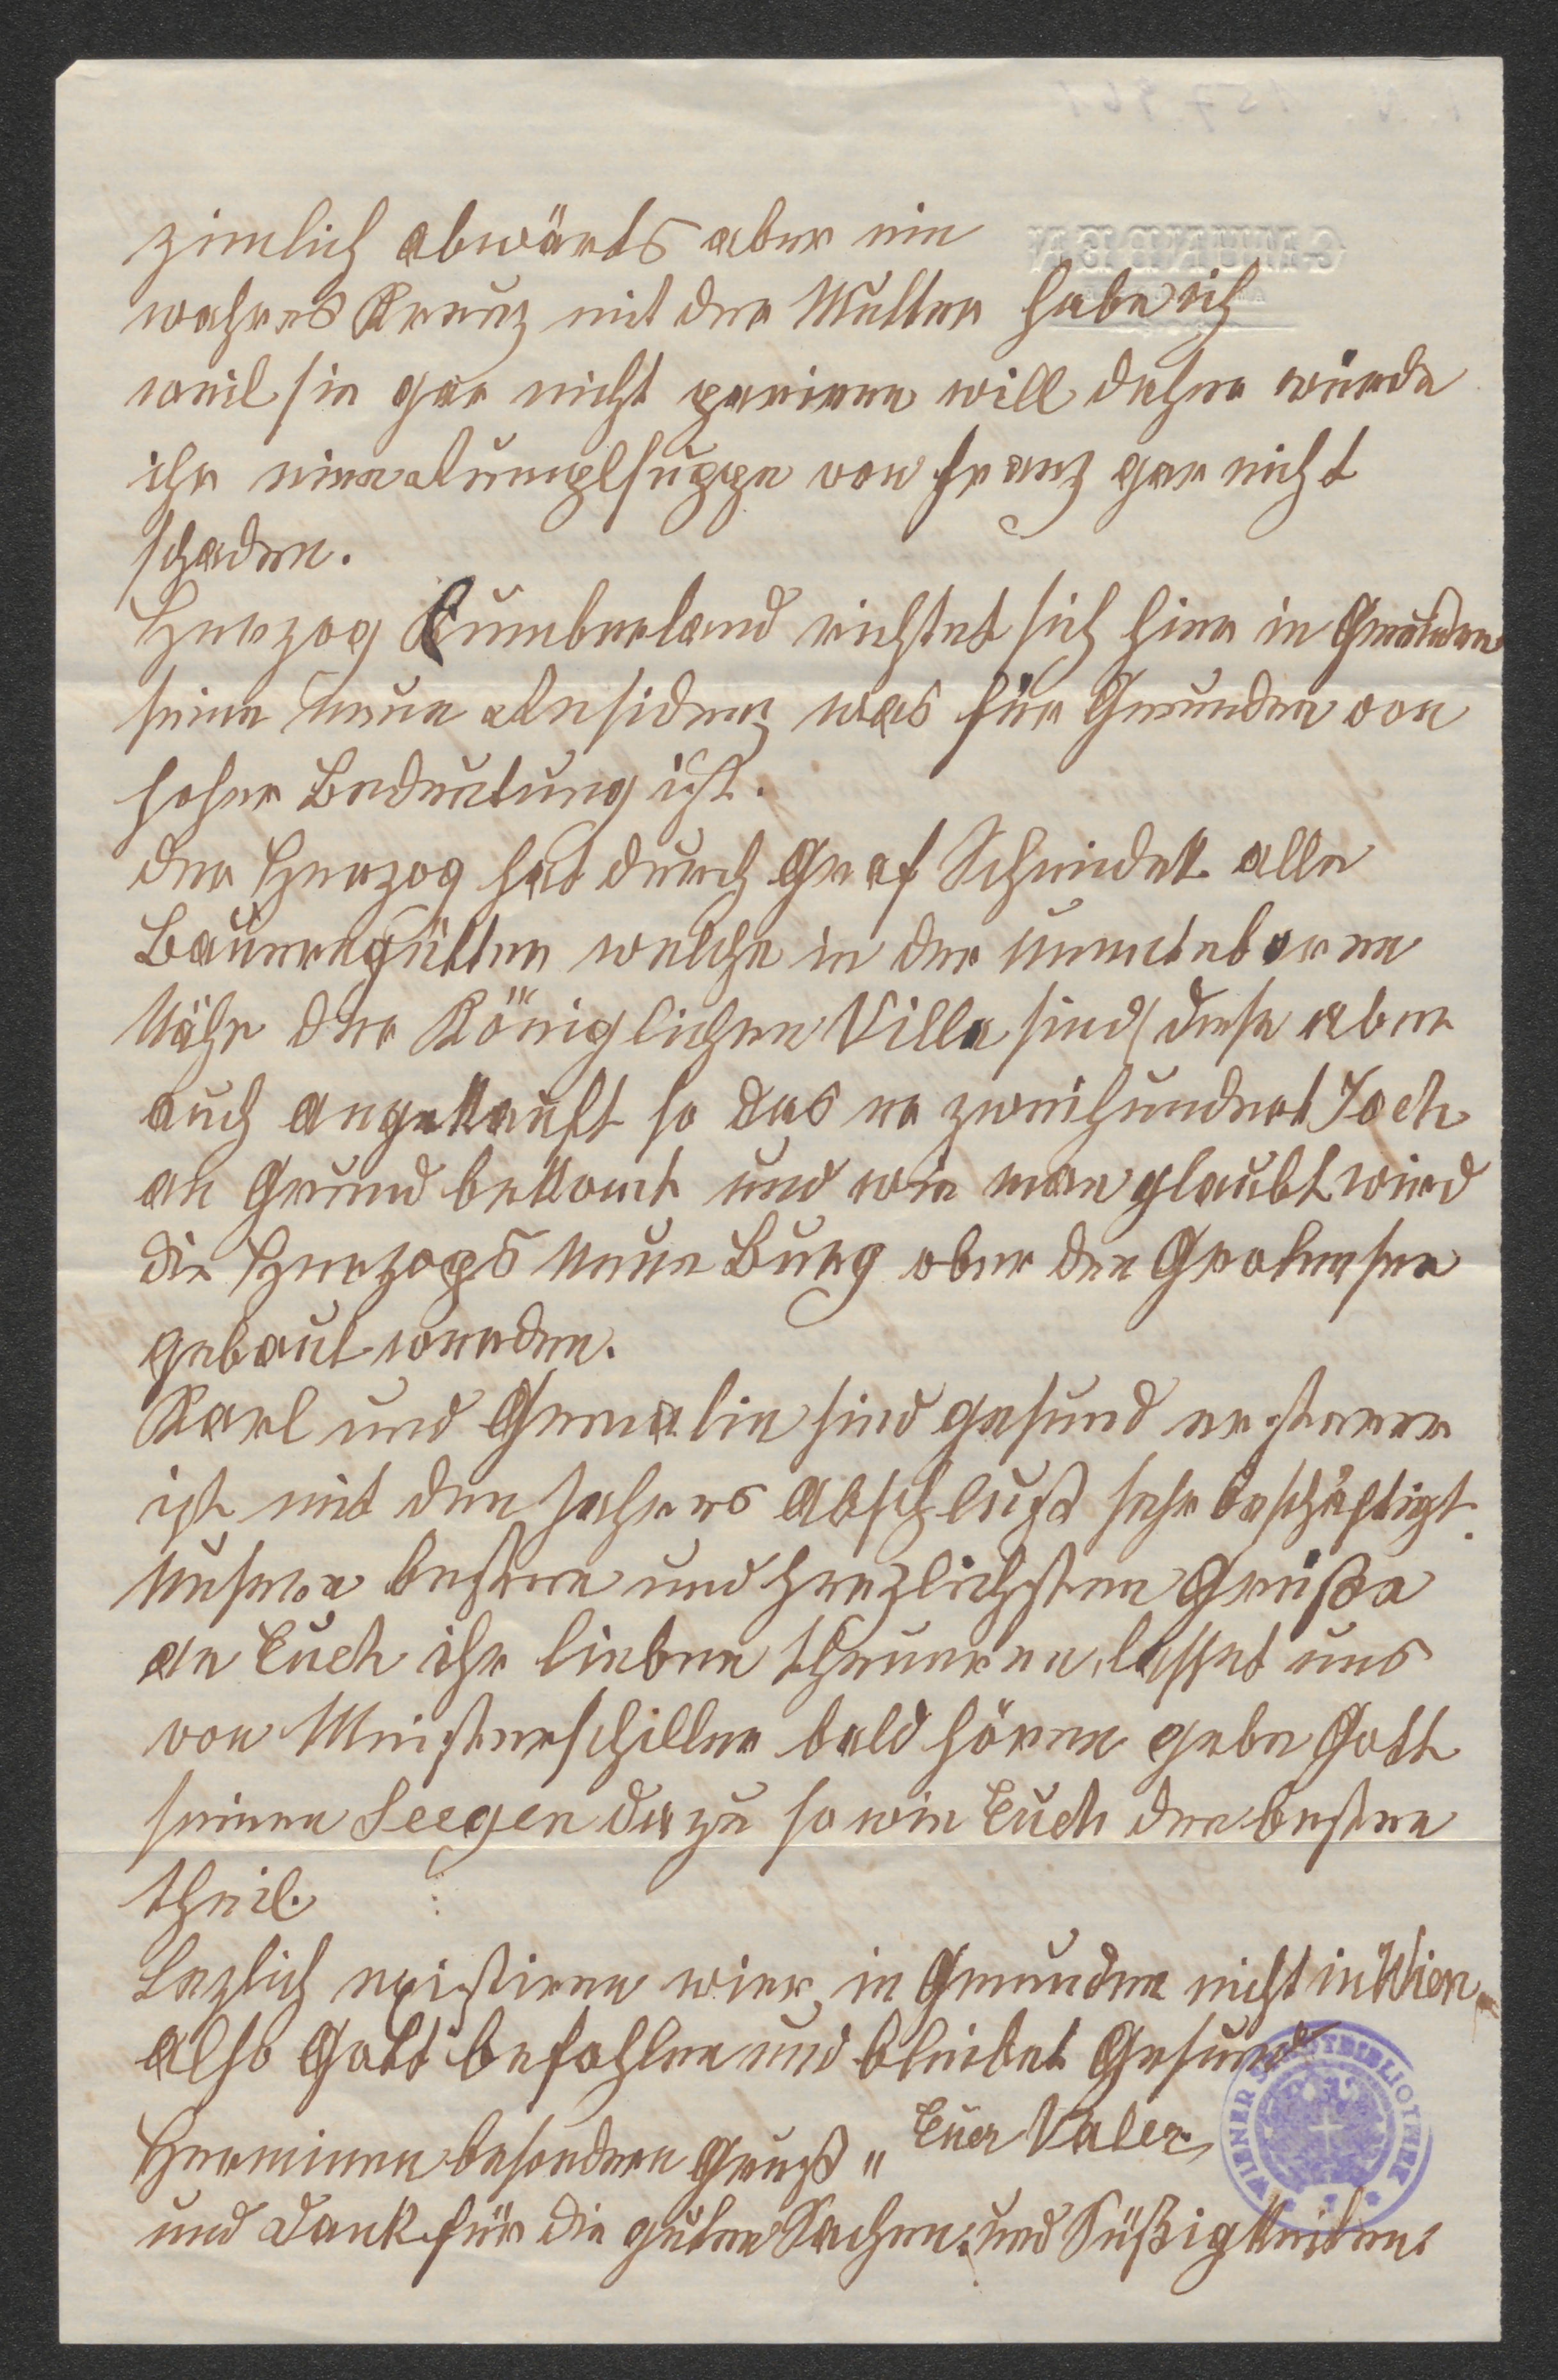 zimlich abwärts aber ein
wahres Kreuz mit der Mutter habe ich
weil sie gar nicht parieren will daher würde
ihr eine Rumplsuppe von Franz gar nicht
schaden.
Herzog Cumberland richtet sich hier in Gmunden
seine neue Residenz was für Gmunden von
hoher Bedeutung ist.
der Herzog hat durch Graf Schmidek alle
Bauerngütter welche in der unmitebaren
Nähe der Königlichen Villa sind diese aber
auch angekauft so das er zweihundert Joch
an Grund bekomt und wie man glaubt wird
die Herzogs neue Burg ober den
gebaut werden.
Karl und Gemalin sind gesund ersterer
ist mit den Jahres Abschluß sehr beschäftigt.
Unsere besten und herzlichsten Grüße
an Euch ihr lieben theueren, lasset uns
von Meisterschiller bald hören gebe Gott
seinen Seegen dazu so wie Euch den besten
theil.
Lezlich existiren wier in Gmunden nicht in Wien
also Gott befohlen und bleibet Gesund
Euer Vater
Herminen besondern Gruß "
und Dank für die guten Sachen und Süßigkeiten.
WIENER STADTBIBLIOTHEK